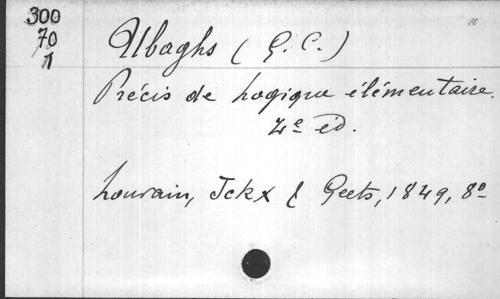 300
70
1
Ubaghs (G. C.)
Précis de Logique élémentaire.
4e ed.
Louvain, Ickx & Geets, 1849, 8o